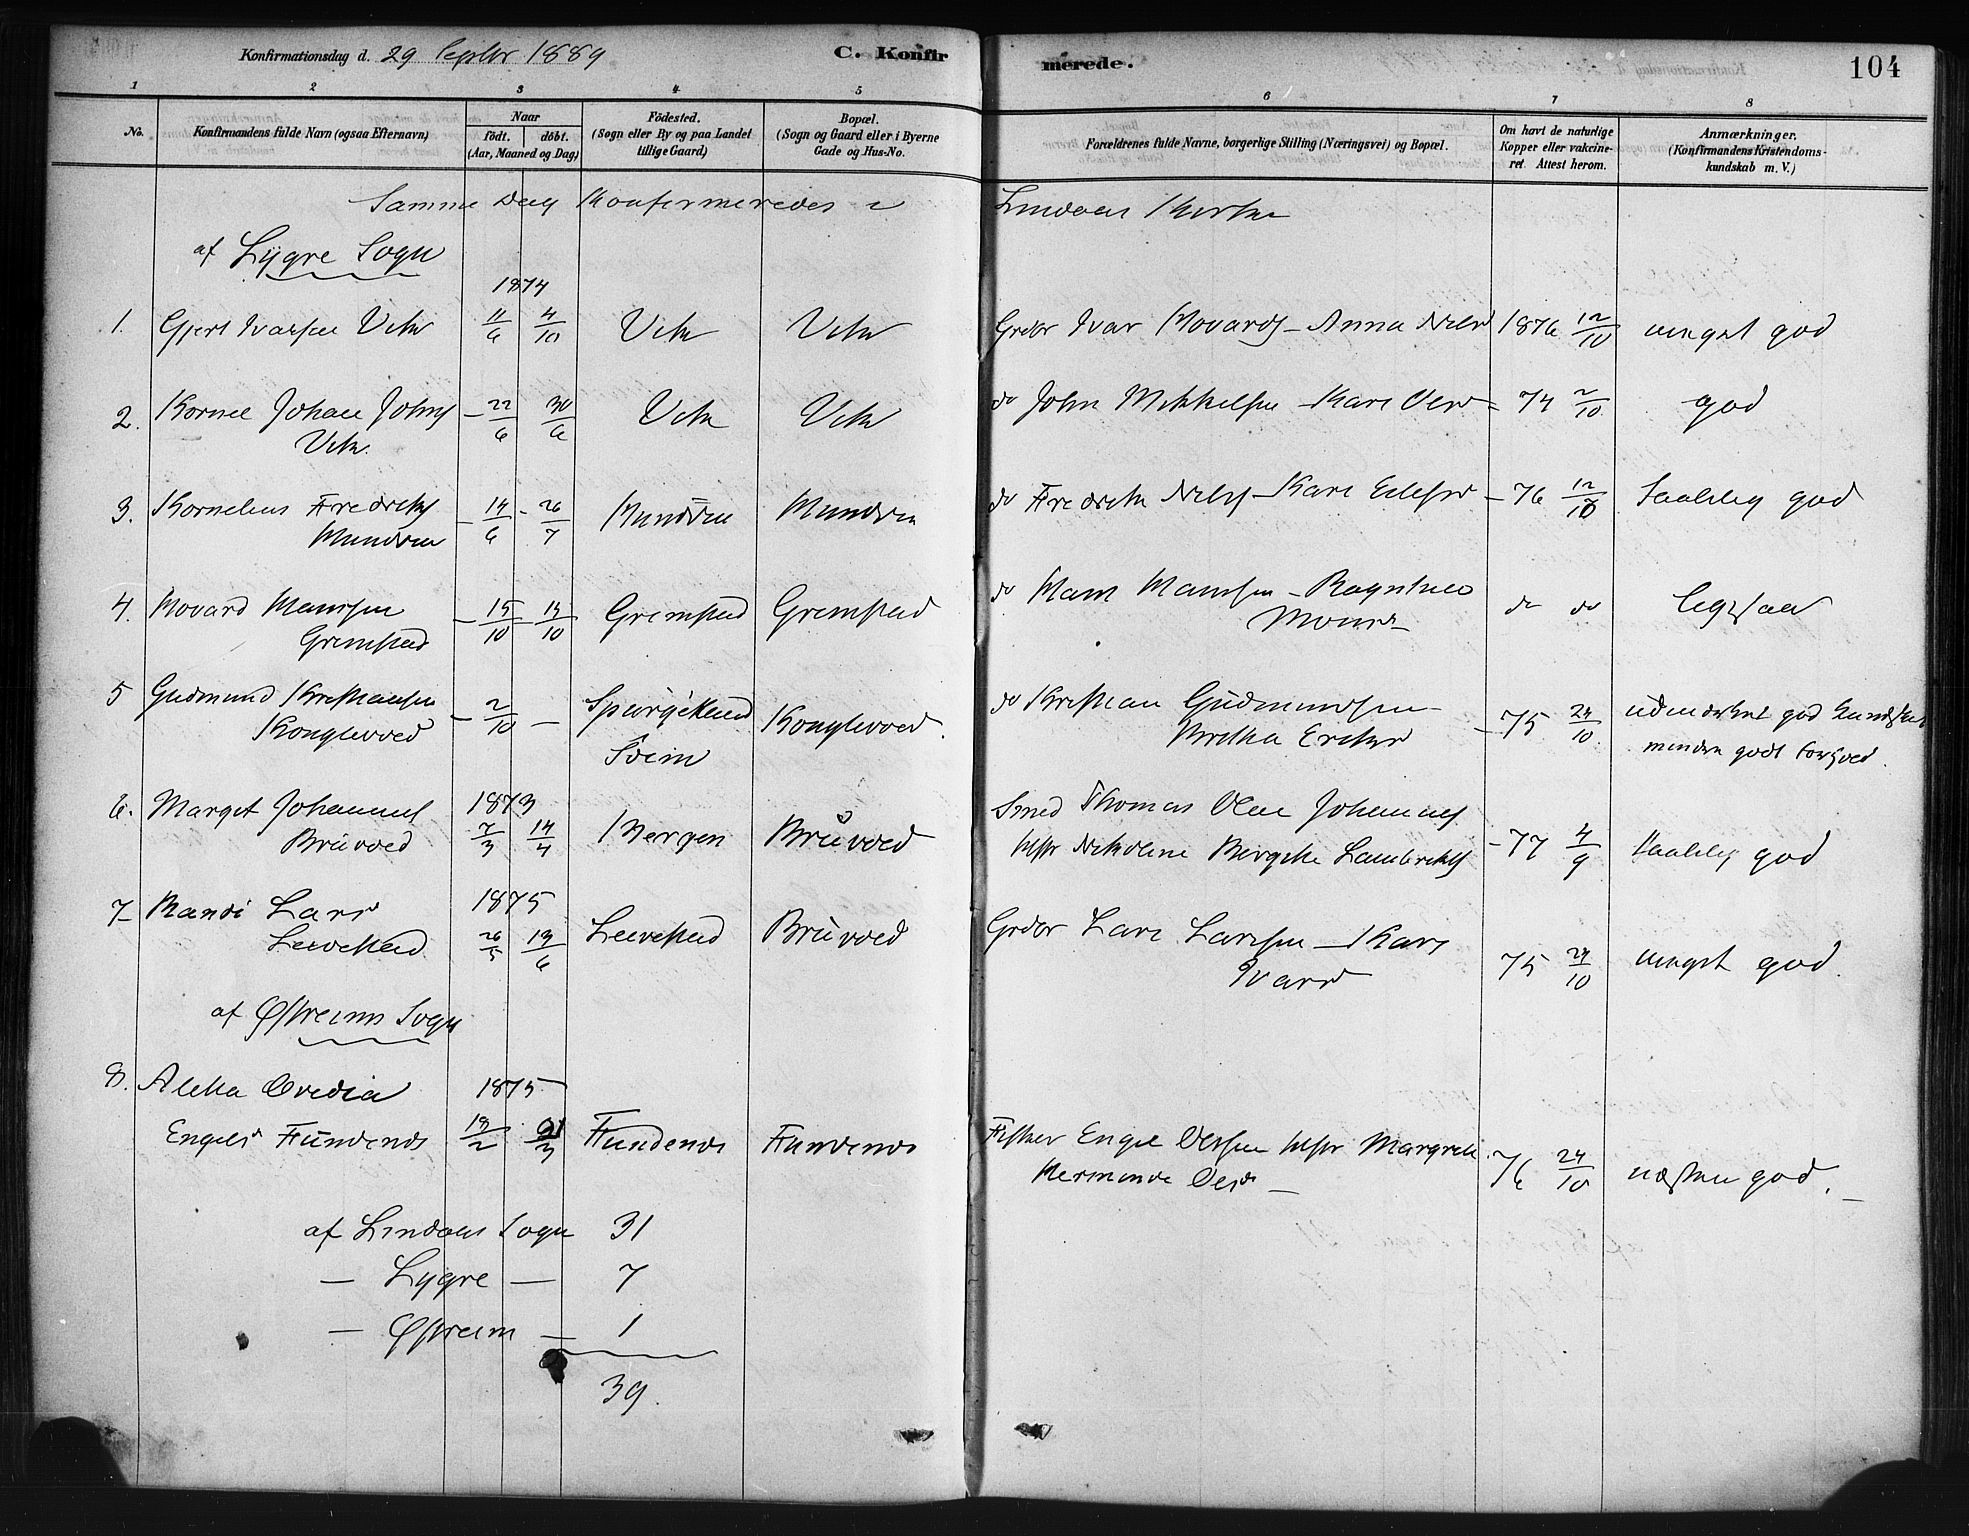 Konfirmationsdag d. 29 Septbr 1889
C. Konfirmerede.
104
1 2 3 4 5 6 7 8
No.
Konfirmandens fulde Navn (ogsaa Efternavn)
Naar
födt. döbt.
(Aar, Maaned og Dag)
Födested.
(Sogn eller By og paa Landet
tillige Gaard)
Bopæl.
(Sogn og Gaard eller i Byerne
Gade og Hus-No.
Forældrenes fulde Navne, borgerlige Stilling (Næringsvei) og Bopæl.
Om havt de naturlige
Kopper eller vakcine-
ret Attest herom.
Anmærkninger.
(Konfirmandens Kristendoms-
kundskab m. V.)
Samme Dag Konfirmeredes i Lindaas Kirke
af Lygre Sogn
1874
1. Gjert Ivarsen Vik 11/6 4/10 Vik Vik Grdbr Ivar Hovards - Anna Nilsd 1876 12/10 meget god
2. Kornel Johan Johns - 22/6 30/6 Vik Vik do John Mikkelsen - Kari Olsd - 74 2/10 god
Vik
3. Kornelius Fredriks - 14/6 - 26/7 Mundren Mundren do Fredrik Nils - Kari - 76 12/10 taalelig god
Mundren
4. Hovard Monsen - 15/10 - 19/10 Grimstad Grimstad do Mons Monsen - Ragnhild do do ligesaa
Grimstad Monsd
5 Gudmund Kristiansen - 2/10 - Spurgekend Konglevoed do Kristian Gudmundsen - 75 24/10 udmærket god Kundskab
Konglevoed Soeim Eriksd mindre godt Forhold.
6. Marget Johannes 1873 Smed Thomas Olai Johannes
Bruvoed 7/3 14/4 Bergen Bruvoed Hstr Nikoline Birgite Lambrekts - 77 4/9 taalelig god
7 Randi Larsd 1875 Grdbr Lars Larsen - Kari
26/5 13/6 Bruvoed Ivarsd 75 24/10 meget god.
af Østreims Sogn
8. Aletta Ovedia 1875
Engelsd Fundenes 19/2 21/3 Fundenes Fundenes Fisker Engel Olesen Hstr Margrete 76 24/10 næsten god.
Herminda Olsd -
af Lindaas Sogn 31
- Lygre - 7
- Østreim - 1
39.